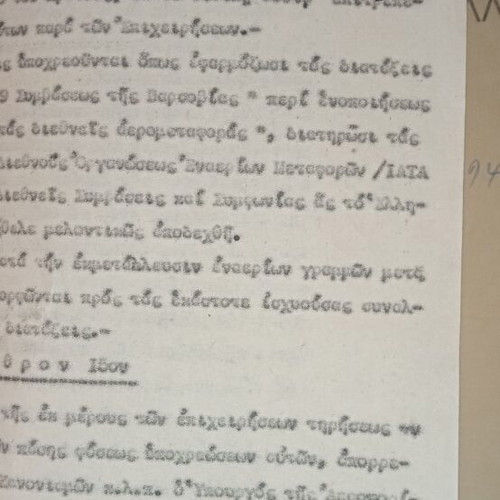 των παρά τῶν Ἐπιχειρήσεων.-
ς ὑποχρεοῦνται ὅπως ἐφαρμόζωσι τάς διατάξεις
9 Συμβάσεως τῆς Βαρσοβίας " περί ἑνοποιήσεως
τάς διεθνεῖς ἀερομεταφοράς ", διατηρῶσι τάς
διεθνοῦς Ὀργανώσεως Ἐναερίων Μεταφορῶν /ΙΑΤΑ
διεθνεῖς Συμβάσεις καί Συμφωνίας ἅς τό Ἑλλη-
θελε μελοντικῶς ἀποδεχθῆ.
ατά τήν ἐκμετάλλευσιν ἐναερίων γραμμῶν μεταξ
ορφῶνται πρός τάς ἑκάστοτε ἰσχυούσας συναλ-
διατάξεις.-
θρον 18ον
τῆς ἐκ μέρους τῶν ἐπιχειρήσεων τηρήσεως
ν πάσης φύσεως ὑποχρεώσεων αὐτῶν, ἀπορρε-
Κανονισμῶν κ.λ.π. ὁ Ὑπουργός τῆς
94